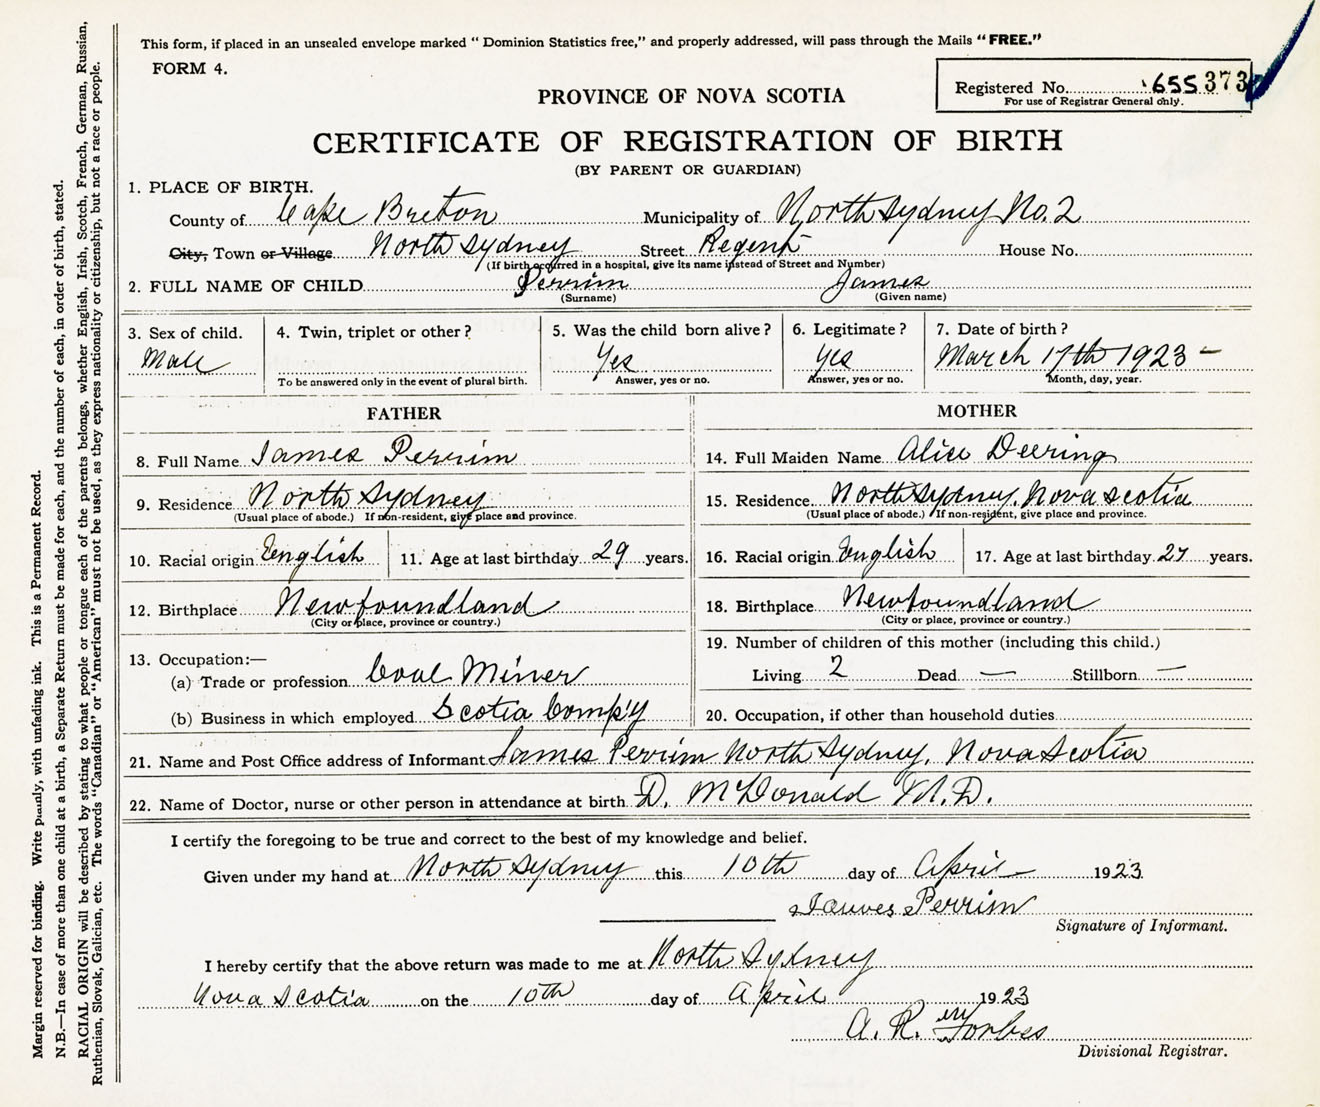 This form, if placed in an unsealed envelope marked “ Dominion Statistics free,” and properly addressed, will pass through the Mails “FREE.”
FORM 4.
Registered No. 655 373
For use of Registrar General only.
PROVINCE OF NOVA SCOTIA
CERTIFICATE OF REGISTRATION OF BIRTH
(BY PARENT OR GUARDIAN)
1. PLACE OF BIRTH.
County of Cape Breton Municipality of North Sydney No. 2
City, Town or Village North Sydney Street Regent House No.
(If birth occurred in a hospital, give its name instead of Street and Number)
2. FULL NAME OF CHILD Perrim James
(Surname) (Given name)
3. Sex of child. 4. Twin, triplet or other? 5. Was the child born alive? 6. Legitimate? 7. Date of birth?
Male Yes Yes March 17th 1923 –
To be answered only in the event of plural birth. Answer, yes or no. Answer, yes or no. Month, day, year.
FATHER MOTHER
8. Full Name James Perrim 14. Full Maiden Name Alice Deering
9. Residence North Sydney 15. Residence North Sydney, Nova Scotia
(Usual place of abode.) If non-resident, give place and province. (Usual place of abode.) If non-resident, give place and province.
10. Racial origin English 11. Age at last birthday 29 years. 16. Racial origin English 17. Age at last birthday years.
12. Birthplace Newfoundland 18. Birthplace Newfoundland
(City or place, province or country.) (City or place, province or country.)
19. Number of children of this mother (including this child.)
13. Occupation:—
(a) Trade or profession Coal Miner Living 2 Dead — Stillborn —
(b) Business in which employed Scotia Comp'y 20. Occupation, if other than household duties
21. Name and Post Office address of Informant James Perrim North Sydney, Nova Scotia
22. Name of Doctor, nurse or other person in attendance at birth D. McDonald M.D.
I certify the foregoing to be true and correct to the best of my knowledge and belief.
Given under my hand at North Sydney this 10th day of April 1923
James Perrim
Signature of Informant.
I hereby certify that the above return was made to me at North Sydney
Nova Scotia on the 10th day of April 1923
A. R. Forbes
Divisional Registrar.
Margin reserved for binding. Write plainly, with unfading ink. This is a Permanent Record.
N.B.—In case of more than one child at a birth, a Separate Return must be made for each, and the number of each, in order of birth, stated.
RACIAL ORIGIN will be described by stating to what people or tongue each of the parents belongs, whether English, Irish, Scotch, French, German, Russian,
Ruthenian, Slovak, Galician, etc. The words “Canadian” or “American” must not be used, as they express nationality or citizenship, but not a race or people.